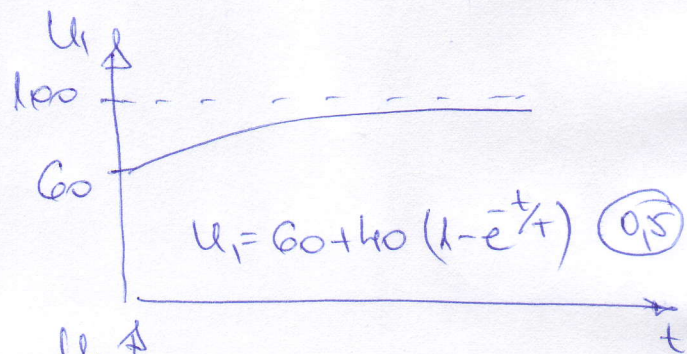 U₁
100
60
U₁=60+40(1-e^-t/T) 0,5
t
U